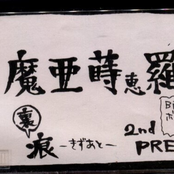 魔亜蒔恵羅
裏
痕 -きずあと-
2nd
PRE